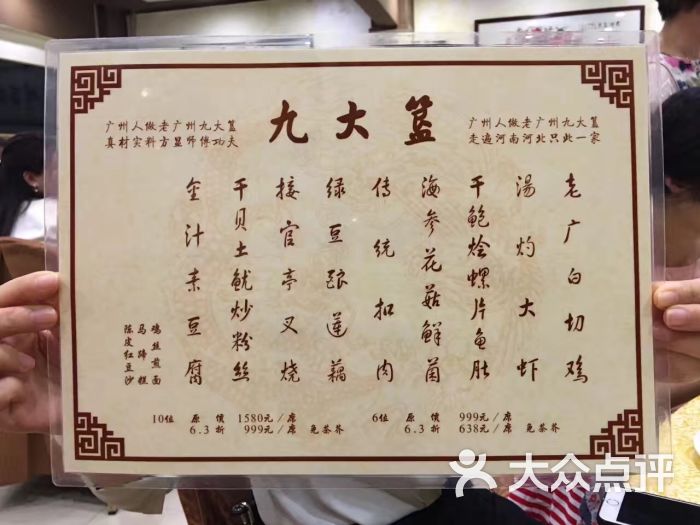 九大簋
广州人做老广州九大簋
真材实料方显师傅功夫
广州人做老广州九大簋
走遍河南河北只此一家
老广白切鸡
汤灼大虾
干鲍烩螺片鱼肚
海参花菇鲜菌
传统扣肉
绿豆酿莲藕
接官亭叉烧
干贝土鱿炒粉丝
金汁素豆腐
鸡丝煎面
马蹄糕
陈皮红豆沙
10位 原价 1580元/席
6.3折 999元/席 免茶芥
6位 原价 999元/席
6.3折 638元/席 免茶芥
大众点评